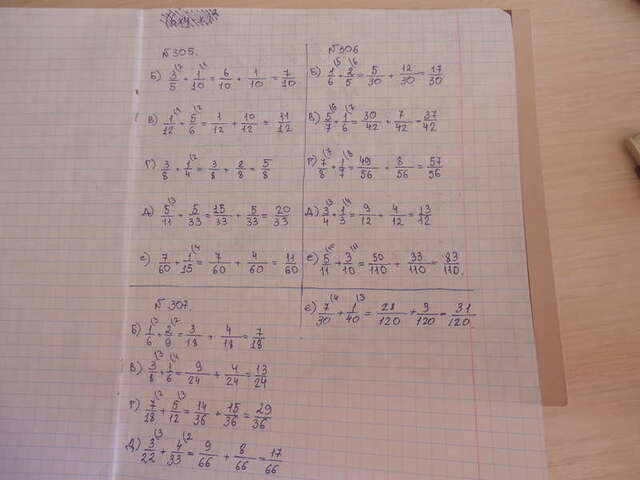 N305.
б) 3/5 (2 + 1/10 (1 = 6/10 + 1/10 = 7/10
в) 1/12 (1 + 5/6 (2 = 1/12 + 10/12 = 11/12
г) 3/8 + 1/4 (2 = 3/8 + 2/8 = 5/8
д) 5/11 (3 + 5/33 = 15/33 + 5/33 = 20/33
е) 7/60 + 1/15 (4 = 7/60 + 4/60 = 11/60
N306
б) 1/6 (5 + 2/5 (6 = 5/30 + 12/30 = 17/30
в) 5/7 (6 + 1/6 (7 = 30/42 + 7/42 = 37/42
г) 7/8 (7 + 1/7 (8 = 49/56 + 8/56 = 57/56
д) 3/4 (3 + 1/3 (4 = 9/12 + 4/12 = 13/12
е) 5/11 (10 + 3/10 (11 = 50/110 + 33/110 = 83/110.
N307
б) 1/6 (3 + 2/9 (2 = 3/18 + 4/18 = 7/18
в) 3/8 (3 + 1/6 (4 = 9/24 + 4/24 = 13/24
г) 7/18 (2 + 5/12 (3 = 14/36 + 15/36 = 29/36
д) 3/22 (3 + 4/33 (2 = 9/66 + 8/66 = 17/66
е) 7/30 (4 + 1/40 (3 = 28/120 + 3/120 = 31/120.